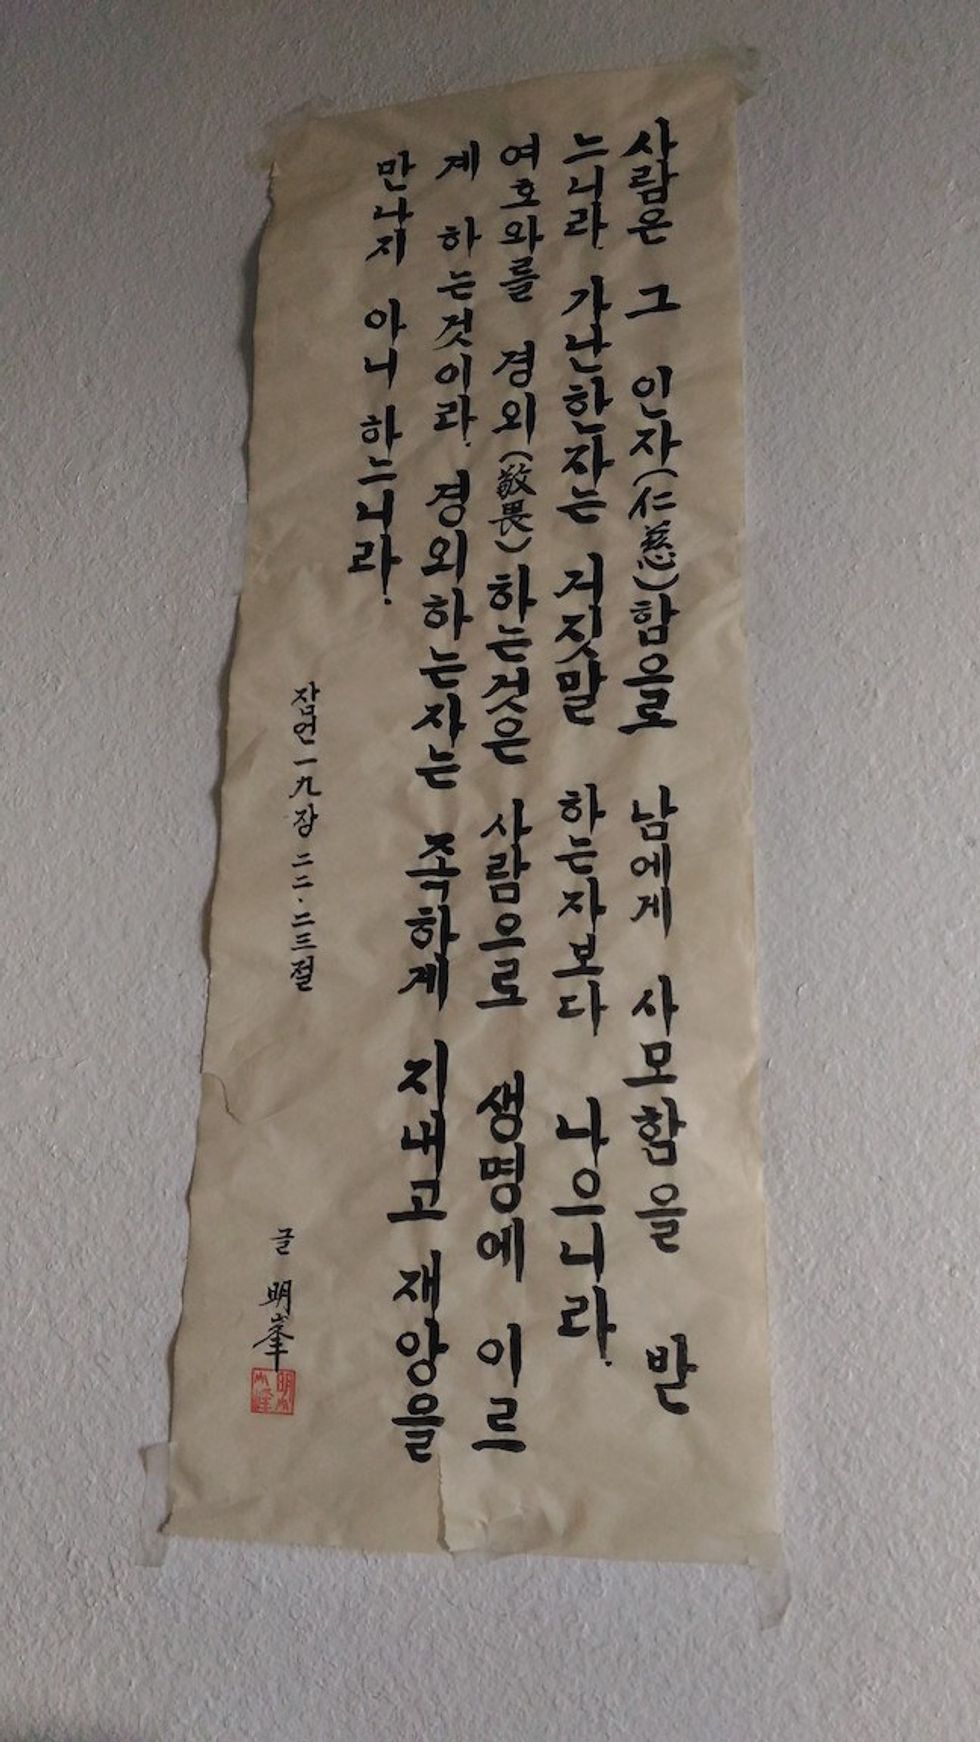 사람은 그 인자(仁慈)함으로 남에게 사모함을 받
느니라. 가난한자는 거짓말 하는자보다 나으니라.
여호와를 경외(敬畏)하는것은 사람으로 생명에 이르
게 하는것이라. 경외하는자는 족하게 지내고 재앙을
만나지 아니 하느니라.
잠언 一九장 二二·二三절
글 明峯